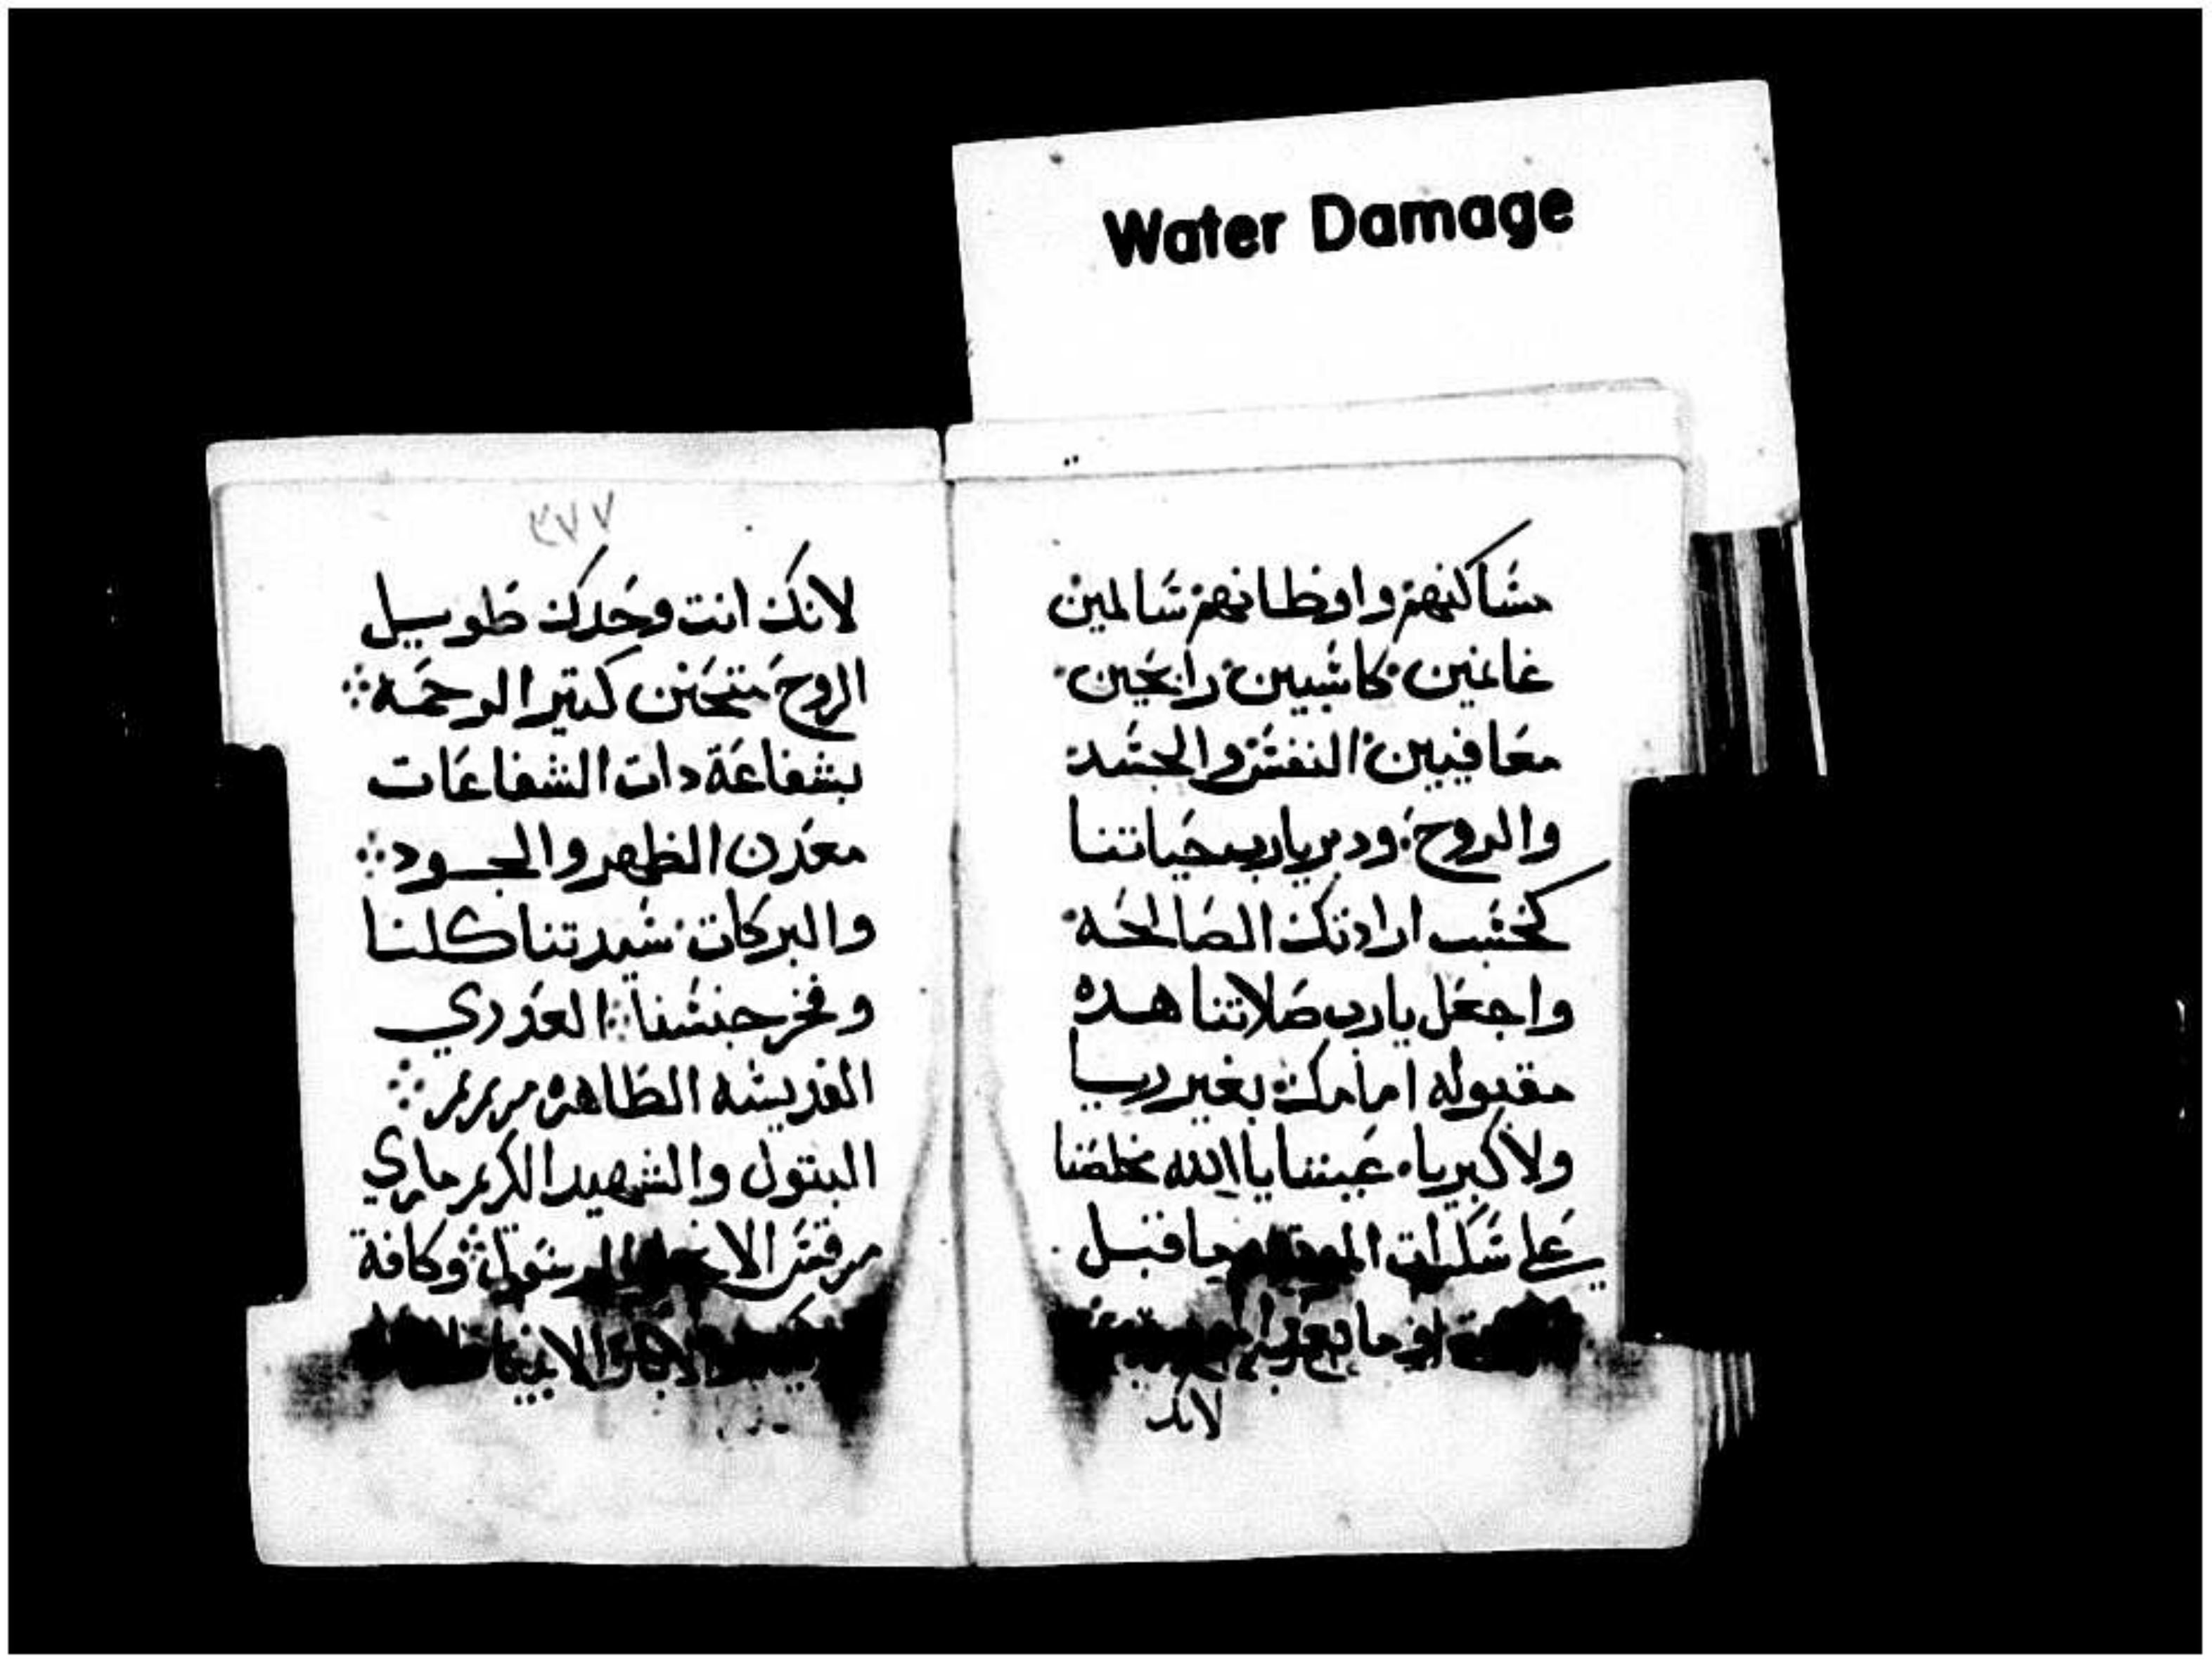 Water Damage
مساكنهم واوطانهم سالمين
غانمين كاسبين رابحين
معافيين النفس والجسد
والروح ودبر يارب حياتنا
كحسب ارادتك الصالحه
واجعل يارب صلاتنا هده
مقبوله امامك بغير ريا
ولا كبرياء عيننا ياالله نخلصنا
علي سكرات الموت وما قبل
الموت وما بعد
لانك
٣٧٧
لانك انت وحدك طويل
الروح متحنن كتير الرحمه
بشفاعة دات الشفاعات
معدن الطهر والجود
والبركات سيدتنا كلنا
وفخر جنسنا العدري
القديسه الطاهره مريم
البتول والشهيد الكريم ماري
مرقس الانجيلي الرسول وكافة